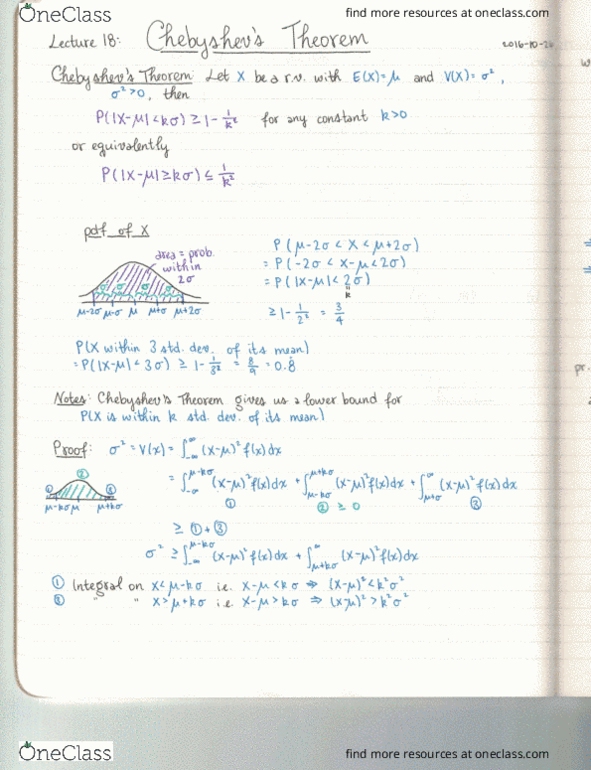 OneClass
find more resources at oneclass.com
Lecture 18: Chebyshev's Theorem 2016-10-26
Chebyshev's Theorem: Let X be a r.v. with E(X)=μ and V(X)=σ²,
σ²>0, then
P(|X-μ|<kσ)≥1-1/k² for any constant k>0
or equivalently
P(|X-μ|≥kσ)≤1/k²
pdf of X
area = prob.
within
2σ
σ σ σ σ
μ-2σ μ-σ μ μ+σ μ+2σ
P(μ-2σ<X<μ+2σ)
= P(-2σ<X-μ<2σ)
= P(|X-μ|<2σ)
"
k
≥1-1/2² = 3/4
P(X within 3 std. dev. of its mean)
= P(|X-μ|<3σ) ≥ 1-1/3² = 8/9 = 0.8̇
Notes: Chebyshev's Theorem gives us a lower bound for
P(X is within k std. dev. of its mean)
Proof: σ² = V(X) = ∫_-∞^∞ (x-μ)² f(x)dx
= ∫_-∞^μ-kσ (x-μ)² f(x)dx + ∫_μ-kσ^μ+kσ (x-μ)² f(x)dx + ∫_μ+kσ^∞ (x-μ)² f(x)dx
① ② ≥ 0 ③
① ② ③
μ-kσ μ μ+kσ
≥ ① + ③
σ² ≥ ∫_-∞^μ-kσ (x-μ)² f(x)dx + ∫_μ+kσ^∞ (x-μ)² f(x)dx
① Integral on x<μ-kσ i.e. x-μ<kσ ⇒ (x-μ)²<k²σ²
③ " " x>μ+kσ i.e. x-μ>kσ ⇒ (x-μ)²>k²σ²
pr.
OneClass
find more resources at oneclass.com